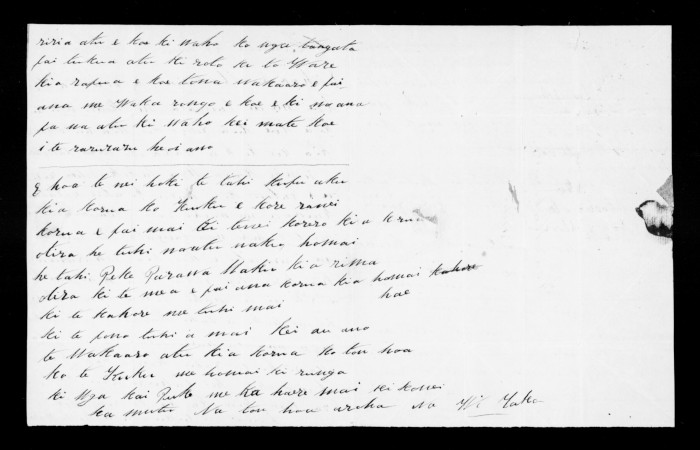 riria atu e koe ki waho ko nga tangata
pai tukua atu ki roto ki to Ware
kia rapua e koe tona wakaaro e pai
ana me Waka rongo e koe e ki
pa na atu ki waho kei mate koe
i te raruraru heoi ano
E hoa te nei hoki te tahi kupu aku
kia korua ko Kuku e kore ranei
korua e pai mai ki tenei korero kia
otira he tuhi naatu naku homai
he tahi Peke Parawa Maku kia rima
otira ki te mea e pai ana korua kia homai
ki te kahore me tuhi mai hoe
ki te pono tuhi a mai kei au ano
te Wakaaro atu kia korua ko tou hoa
ko te Kuku me homai ki runga
ki Nga kai Puke me ka haere mai ki konei
ka mutu Na tou hoa aroha Na Wi Tako